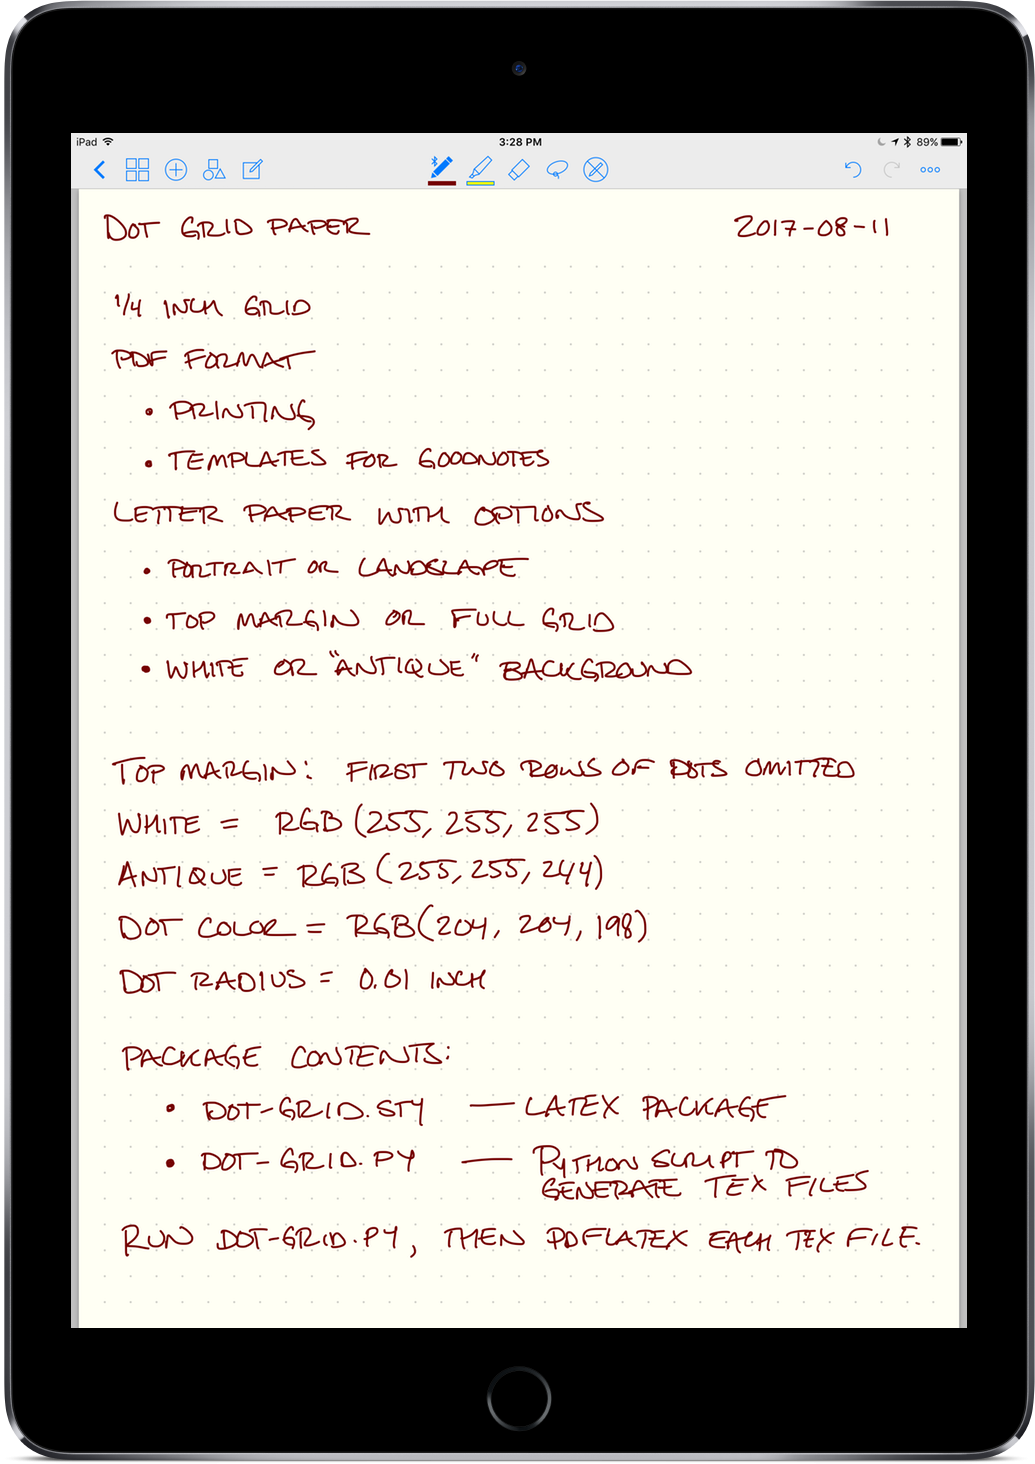 iPad 3:28 PM 89%
DOT GRID PAPER 2017-08-11
1/4 INCH GRID
PDF FORMAT
• PRINTING
• TEMPLATES FOR GOODNOTES
LETTER PAPER WITH OPTIONS
• PORTRAIT OR LANDSCAPE
• TOP MARGIN OR FULL GRID
• WHITE OR "ANTIQUE" BACKGROUND
TOP MARGIN: FIRST TWO ROWS OF DOTS OMITTED
WHITE = RGB (255, 255, 255)
ANTIQUE = RGB (255, 255, 244)
DOT COLOR = RGB (204, 204, 198)
DOT RADIUS = 0.01 INCH
PACKAGE CONTENTS:
• DOT-GRID.STY — LATEX PACKAGE
• DOT-GRID.PY — PYTHON SCRIPT TO
GENERATE TEX FILES
RUN DOT-GRID.PY, THEN PDFLATEX EACH TEX FILE.